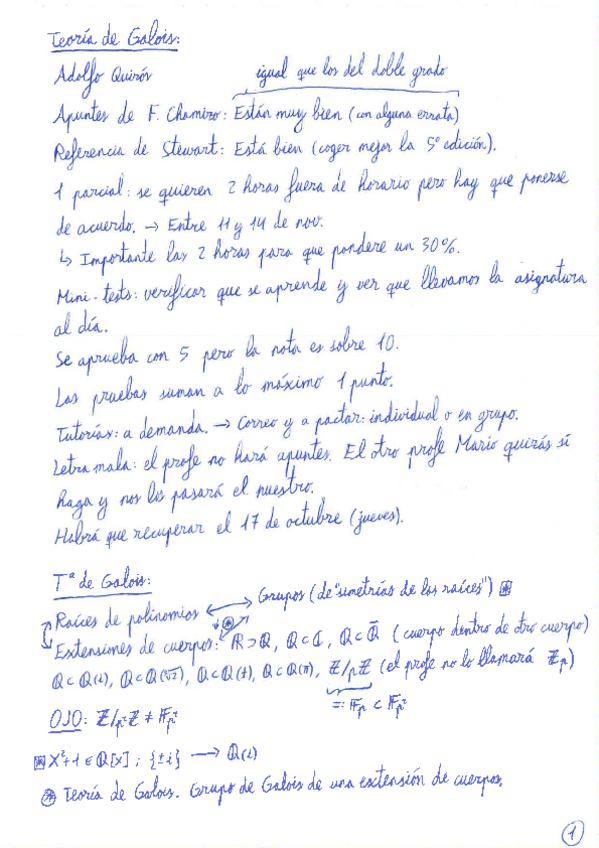 Teoría de Galois:
Adolfo Quirós
igual que los del doble grado
Apuntes de F. Chamizo: Están muy bien (con alguna errata)
Referencia de Stewart: Está bien (coger mejor la 5ª edición).
1 parcial: se quieren 2 horas fuera de horario pero hay que ponerse
de acuerdo. → Entre 11 y 14 de nov.
↳ Importante las 2 horas para que pondere un 30%.
Mini-tests: verificar que se aprende y ver que llevamos la asignatura
al día.
Se aprueba con 5 pero la nota es sobre 10.
Las pruebas suman a lo máximo 1 punto.
Tutorías: a demanda. → Correo y a pactar: individual o en grupo.
Letra mala: el profe no hará apuntes. El otro profe Mario quizás sí
haga y nos los pasará el nuestro.
Habrá que recuperar el 17 de octubre (jueves).
Tª de Galois:
Raíces de polinomios ↔ Grupos (de "simetrías de las raíces") ⊞
Extensiones de cuerpos: ℝ ⊃ ℚ, ℚ ⊂ ℂ, ℚ ⊂ ℚ̄ (cuerpo dentro de otro cuerpo)
ℚ ⊂ ℚ(i), ℚ ⊂ ℚ(√2), ℚ ⊂ ℚ(t), ℚ ⊂ ℚ(π), ℤ/pℤ (el profe no lo llamará ℤp)
=: 𝔽p ⊂ 𝔽p²
OJO: ℤ/p²ℤ ≠ 𝔽p²
⊞ X²+1 ∈ ℚ[x] ; {±i} → ℚ(i)
⊛ Teoría de Galois. Grupo de Galois de una extensión de cuerpos.
1